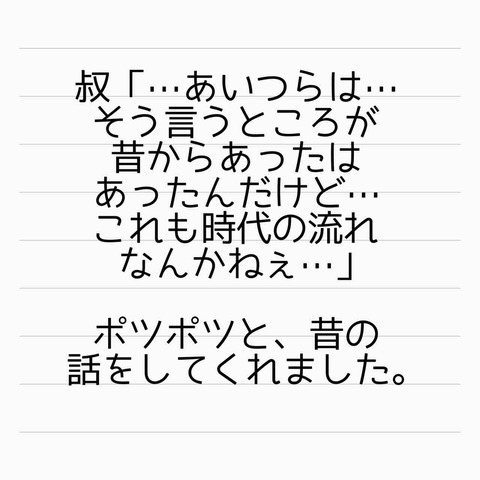 叔「…あいつらは…
そう言うところが
昔からあったは
あったんだけど…
これも時代の流れ
なんかねぇ…」
ポツポツと、昔の
話をしてくれました。